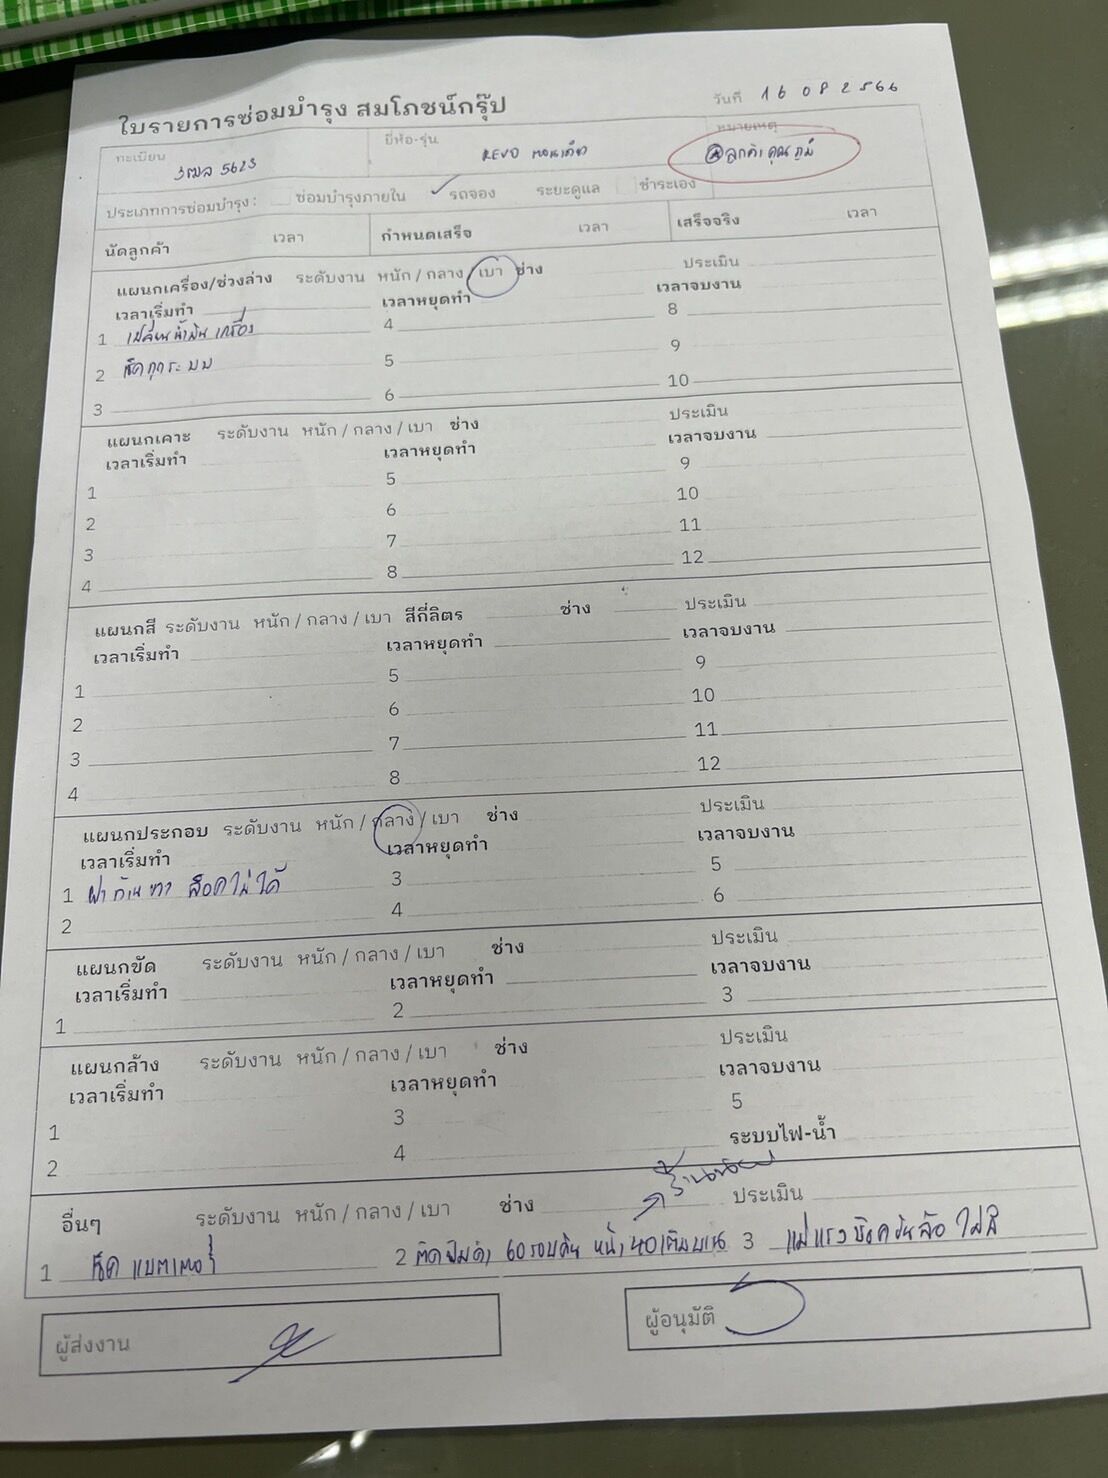 ใบรายการซ่อมบำรุง สมโภชน์กรุ๊ป วันที่ 16 08 2566
ทะเบียน 3ฒล 5623 ยี่ห้อ-รุ่น REVO ตอนเดียว หมายเหตุ ลูกค้าคุณภูมิ
ประเภทการซ่อมบำรุง : ซ่อมบำรุงภายใน ✓ รถจอง ระยะดูแล ชำระเอง
นัดลูกค้า เวลา กำหนดเสร็จ เวลา เสร็จจริง เวลา
แผนกเครื่อง/ช่วงล่าง ระดับงาน หนัก / กลาง / เบา ช่าง ประเมิน
เวลาเริ่มทำ เวลาหยุดทำ เวลาจบงาน
1 เปลี่ยนน้ำมันเครื่อง 4 8
2 เช็คทุกระบบ 5 9
3 6 10
แผนกเคาะ ระดับงาน หนัก / กลาง / เบา ช่าง ประเมิน
เวลาเริ่มทำ เวลาหยุดทำ เวลาจบงาน
1 5 9
2 6 10
3 7 11
4 8 12
แผนกสี ระดับงาน หนัก / กลาง / เบา สีกี่ลิตร ช่าง ประเมิน
เวลาเริ่มทำ เวลาหยุดทำ เวลาจบงาน
1 5 9
2 6 10
3 7 11
4 8 12
แผนกประกอบ ระดับงาน หนัก / กลาง / เบา ช่าง ประเมิน
เวลาเริ่มทำ เวลาหยุดทำ เวลาจบงาน
1 ฝาท้าย ล็อคไม่ได้ 3 5
2 4 6
แผนกขัด ระดับงาน หนัก / กลาง / เบา ช่าง ประเมิน
เวลาเริ่มทำ เวลาหยุดทำ เวลาจบงาน
1 2 3
แผนกล้าง ระดับงาน หนัก / กลาง / เบา ช่าง ประเมิน
เวลาเริ่มทำ เวลาหยุดทำ เวลาจบงาน
1 3 5
2 4 ระบบไฟ-น้ำ
อื่นๆ ระดับงาน หนัก / กลาง / เบา ช่าง ประเมิน
1 เช็ค แบตเตอรี่ 2 ติดฟิล์มดำ 60รอบคัน หน้า40เต็มบาน 3 แม่แรง บล็อคขันล้อ ไม่มี
ผู้ส่งงาน ผู้อนุมัติ